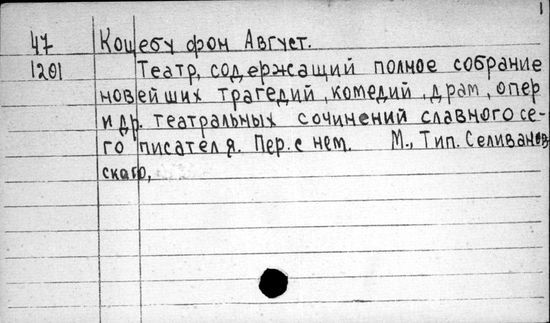 1
47 Коцебу фон Август.
1201 Театр, содержащий полное собрание
новейших трагедий, комедий, драм, опер
и др. театральных сочинений славного се-
го писателя. Пер. с нем. М., Тип. Селиванов-
ского,